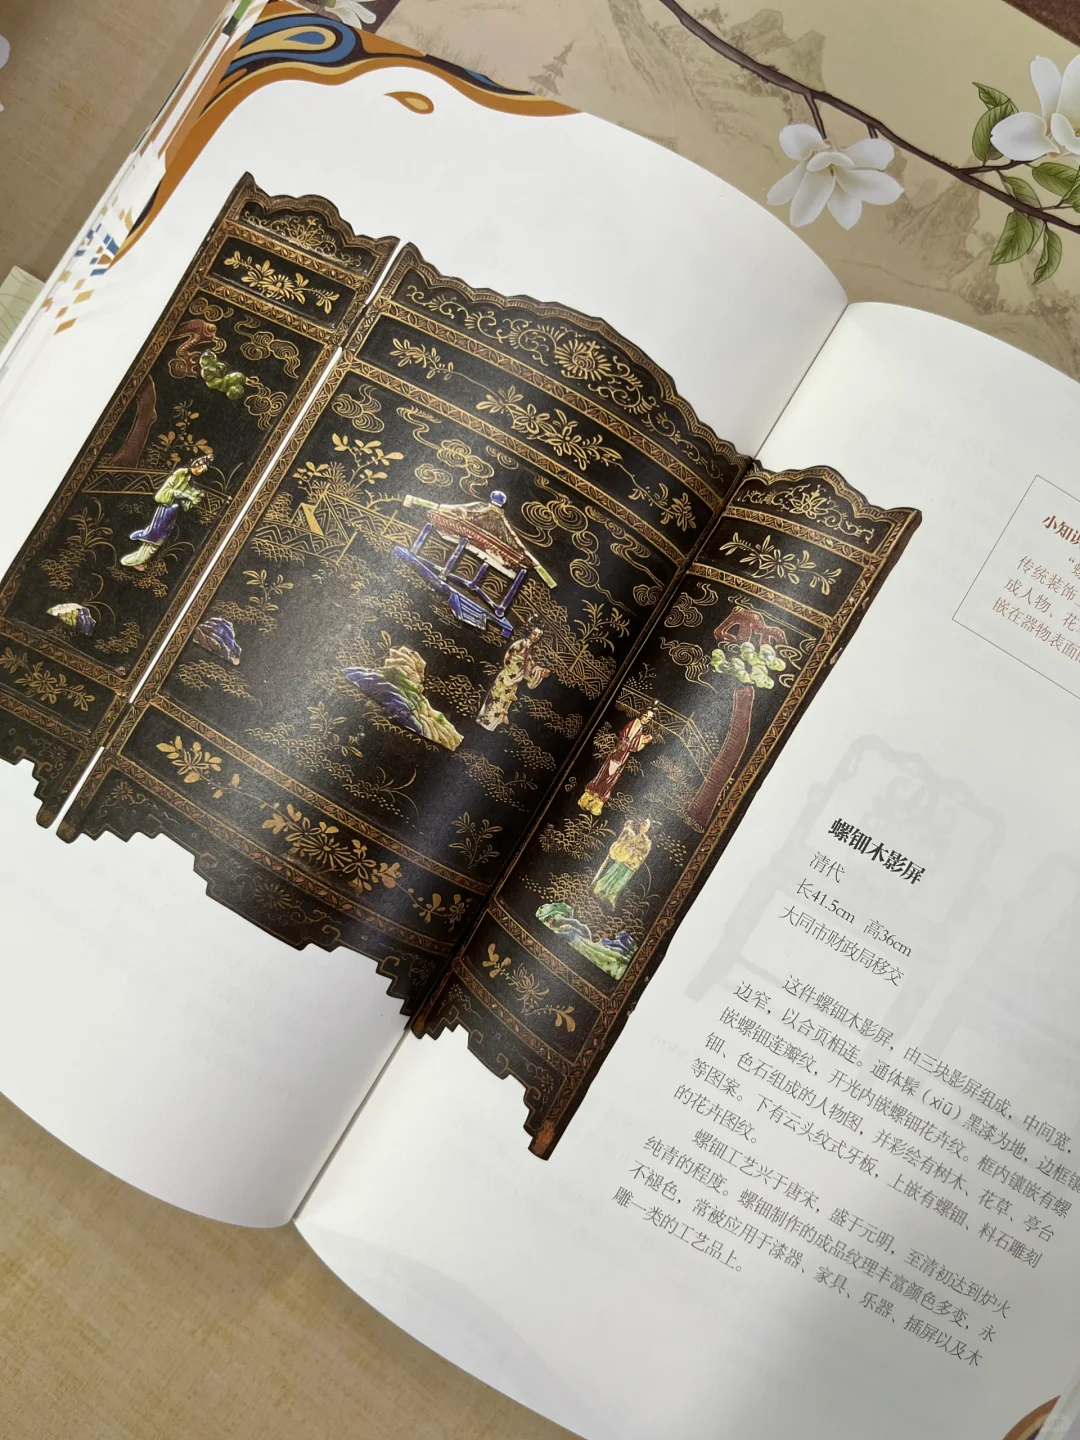 小知识
“螺
传统装饰
成人物、花
嵌在器物表面
螺钿木影屏
清代
长41.5cm 高36cm
大同市财政局移交
这件螺钿木影屏，由三块影屏组成，中间宽，
边窄，以合页相连。通体髹（xiū）黑漆为地，边框镶
嵌螺钿莲瓣纹，开光内嵌螺钿花卉纹。框内镶嵌有螺
钿、色石组成的人物图，并彩绘有树木、花草、亭台
等图案。下有云头纹式牙板，上嵌有螺钿、料石雕刻
的花卉图纹。
螺钿工艺兴于唐宋，盛于元明，至清初达到炉火
纯青的程度。螺钿制作的成品纹理丰富颜色多变，永
不褪色，常被应用于漆器、家具、乐器、插屏以及木
雕一类的工艺品上。